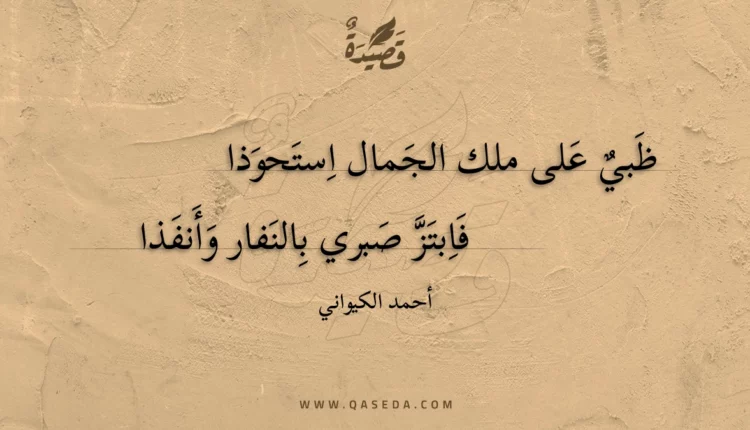 قَصِيدَةٌ
ظَبيٌ عَلى ملك الجَمال اِستَحوَذا
فَاِبتَزَّ صَبري بِالنَفار وَأَنفَذا
أحمد الكيواني
WWW.QASEDA.COM